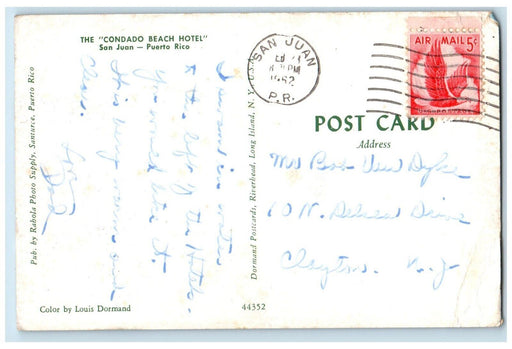 THE "CONDADO BEACH HOTEL"
San Juan — Puerto Rico
I swam in waters
to the left of the Hotel.
You would like it.
It is very warm and
clear.
Love
Dad
Pub. by Rahola Photo Supply, Santurce, Puerto Rico
Color by Louis Dormand
44352
Dormand Postcards, Riverhead, Long Island, N. Y., U.S.A.
SAN JUAN
PM
1962
P.R.
AIR MAIL 5¢
U.S. POSTAGE
POST CARD
Address
Mr Bob Van Dyke
10 N. Drive
Clayton. N.J